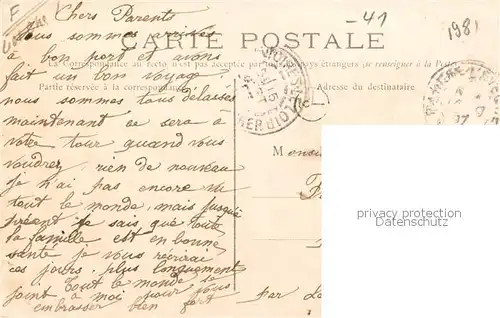 F
- 41
1981
CARTE POSTALE
La Correspondance au recto n'est pas acceptée par tous les pays étrangers (se renseigner à la Poste)
Partie réservée à la correspondance
Adresse du destinataire
Chers Parents
Nous sommes arrivés
à bon port et avons
fait un bon voyage
nous sommes tous délassés
maintenant ce sera à
votre tour quand vous
voudrez, rien de nouveau
je n'ai pas encore vu
tout le monde, mais jusque
présent je sais que toute
la famille est en bonne
santé je vous récrirai
ces jours plus longuement
Tout le monde se
joint à moi pour vous
embrasser bien fort
Monsie
par
privacy protection
Datenschutz